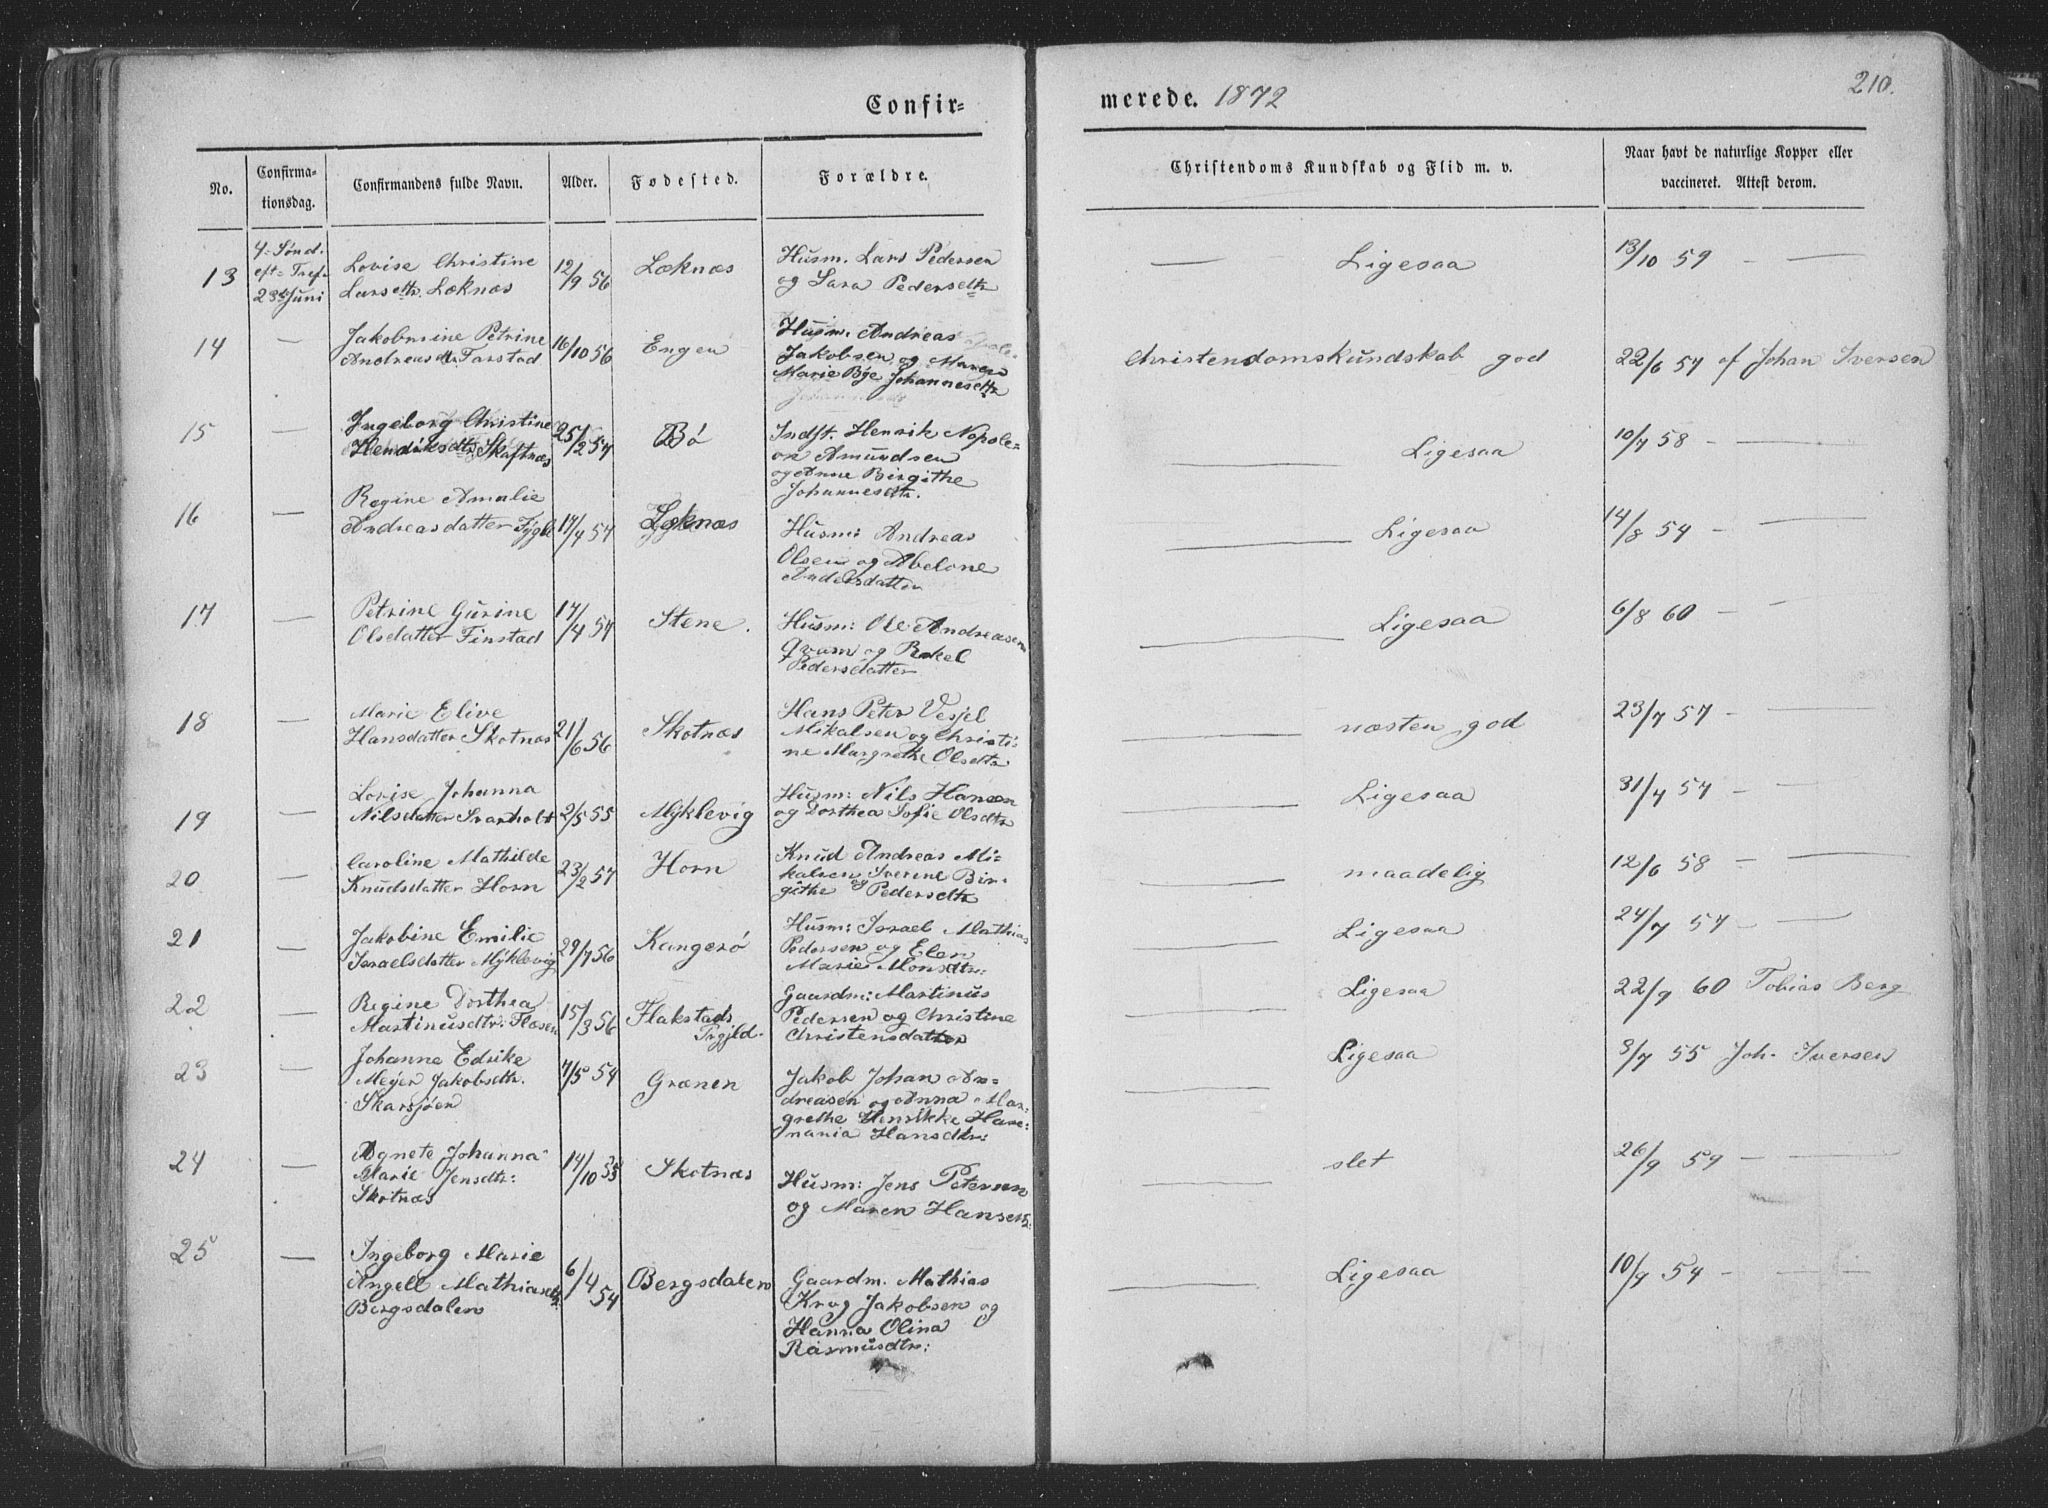 Confir=
merede. 1872
210.
No.
Confirma-
tionsdag.
Confirmandens fulde Navn.
Alder.
Fødested.
Forældre.
Christendoms Kundskab og Flid m. v.
Naar havt de naturlige Kopper eller
vaccineret. Attest derom.
13
4= Sønd.
eft= Tref=
23de Juni
Lovise Christine
Larsdtr. Læknæs
12/9 56
Læknæs
Husm. Lars Pedersen
og Sara Pedersdtr
— Ligesaa
13/10 59 — —
14
—
Jakobmine Petrine
Andreasdtr Farstad
16/10 56
Engen
Husm. Andreas
Jakobsen og Maren
Marie Bÿe Johannesdtr
Christendomskundskab god
22/6 57 af Johan Iversen
15
—
Ingeborg Christine
Hendriksdtr Skaftnæs
25/2 57
Bö
Indst. Henrik Nopole=
on Amundsen
og Anne Birgithe
Johannesdtr.
— Ligesaa
10/7 58 — —
16
—
Regine Amalie
Andreasdatter Fÿgle
17/4 57
Læknæs
Husm: Andreas
Olsen og Abelone
Andersdatter
— Ligesaa
14/8 57 — —
17
—
Petrine Gurine
Olsdatter Finstad
17/4 57
Stene.
Husm: Ole Andreasen
Qvam og Rakel
Pedersdatter
— Ligesaa
6/8 60 — —
18
—
Marie Elive
Hansdatter Skotnæs
21/6 56
Skotnæs
Hans Peter Vesjel
Mikalsen og Christi=
ne Margrethe Olsdtr
— næsten god
23/7 57 — —
19
—
Lovise Johanna
Nilsdatter Svarholt
2/5 55
Mÿklevig
Husm: Nils Hansen
og Dorthea Sofie Olsdtr
— Ligesaa
31/7 57 — —
20
—
Caroline Mathilde
Knudsdatter Horn
23/2 57
Horn
Knud Andreas Mi=
kalsen og Iverine Bir=
githe Pedersdtr
— maadelig
12/6 58 — —
21
—
Jakobine Emilie
Israelsdatter Mÿklevig
29/7 56
Kangerö
Husm: Israel Mathias
Pedersen og Elen
Marie Monsdtr:
— Ligesaa
24/7 57 — —
22
—
Regine Dorthea
Martinusdtr: Flæsen
15/3 56
Flakstads
Prgjld.
Gaardm: Martinus
Pedersen og Christine
Christensdatter
— Ligesaa
22/9 60 Tobias Berg
23
—
Johanne Edrike
Meyer Jakobsdtr.
Skarsjöen
7/5 54
Grænen
Jakob Johan An=
dreasen og Anna Mar=
grethe Henrikke Hare=
nania Hansdtr:
— Ligesaa
8/7 55 Joh. Iversen
24
—
Agnete Johanna
Marie Jensdtr:
Skotnæs
14/10 55
Skotnæs
Husm: Jens Petersen
og Maren Hansdtr:
— slet
26/9 59 — —
25
—
Ingeborg Marie
Angell Mathiasdtr.
Bergsdalen
6/4 54
Bergsdalen
Gaardm. Mathias
Krog Jakobsen og
Hanna Olina
Rasmusdtr:
— Ligesaa
10/9 54 — —